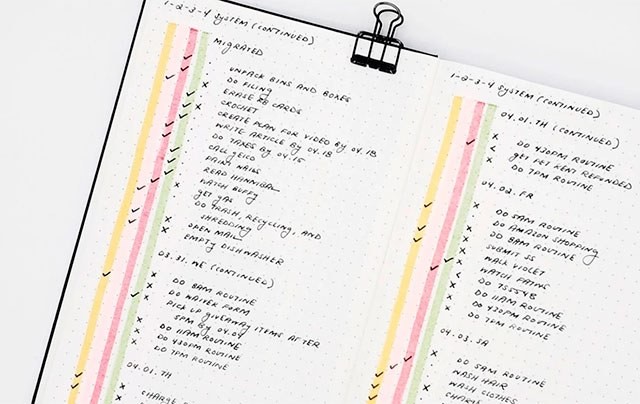 1-2-3-4 SYSTEM (CONTINUED)
MIGRATED
UNPACK BINS AND BOXES
DO FILING
ERASE SD CARDS
CROCHET
CREATE PLAN FOR VIDEO BY 04.18
WRITE ARTICLE BY 04.18
DO TAXES BY 04.15
CALL GEICO
PAINT NAILS
READ HANNIBAL
WATCH BUFFY
GET GAS
DO TRASH, RECYCLING, AND
SHREDDING
OPEN MAIL
EMPTY DISHWASHER
03.31.WE (CONTINUED)
DO 8AM ROUTINE
DO WAIVER FORM
PICK UP GIVEAWAY ITEMS AFTER
5PM BY 04.04
DO 11AM ROUTINE
DO 430PM ROUTINE
DO 7PM ROUTINE
04.01.TH
CHARGE
1-2-3-4 SYSTEM (CONTINUED)
04.01.TH (CONTINUED)
DO 430PM ROUTINE
GET PET RENT REFUNDED
DO 7PM ROUTINE
04.02.FR
DO 5AM ROUTINE
DO AMAZON SHOPPING
DO 8AM ROUTINE
SUBMIT SS
WALK VIOLET
WATCH
DO
DO 11AM ROUTINE
DO 430PM ROUTINE
DO 7PM ROUTINE
04.03.SA
DO 5AM ROUTINE
WASH HAIR
WASH CLOTHES
CHARGE